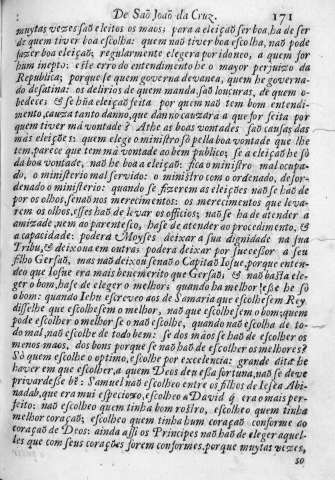 De Saõ Joaõ da Cruz. 171
muytas vezes saõ eleitos os maos; para a eleiçaõ ser boa, ha de ser
de quem tiver boa escolha: quem naõ tiver boa escolha, naõ pode
fazer boa eleiçaõ; regularmente elegera por idoneo, a quem for
hum inepto: este erro do entendimento he o mayor perjuizo da
Republica; porque se quem governa devanea, quem he governa-
do desatina: os delirios de quem manda, saõ loucuras, de quem o-
bedece; & se hũa eleiçaõ feita por quem naõ tem bom entendi-
mento, cauza tanto danno, que danno cauzará a que for feita por
quem tiver má vontade? Athe as boas vontades saõ causas das
más eleições: quem elege o ministro só pella boa vontade que lhe
tem, parece que tem má vontade ao bem publico; se a eleiçaõ he só
da boa vontade, naõ he boa a eleiçaõ: fica o ministro mal ocupa-
do, o ministerio mal servido: o ministro com o ordenado, desor-
denado o ministerio: quando se fizerem as eleições naõ se haõ de
por os olhos, senaõ nos merecimentos: os merecimentos que leva-
rem os olhos, esses haõ de levar os officios; naõ se ha de atender a
amizade, nem ao parentesco, hase de atender ao procedimento, &
a capacidade: podera Moyses deixar a sua dignidade na sua
Tribu, & deixou a em outra: podera deixar por sucessor a seu
filho Gersaõ, mas naõ deixou senaõ o Capitaõ Iosue, porque enten-
deo que Iosue era mais benemerito que Gersaõ; & naõ basta ele-
ger o bom, hase de eleger o melhor; quando ha melhor, esse he só
o bom: quando Iehu escreveo aos de Samaria que escolhessem Rey
disselhe que escolhessem o melhor, naõ que escolhessem o bom; quem
pode escolher o melhor se o naõ escolhe, quando naõ escolha de to-
do mal, naõ escolhe de todo bem: se dos maos se haõ de escolher os
menos maos, dos bons porque se naõ haõ de escolher os melhores?
Só quem escolhe o optimo, escolhe por excelencia: grande dita he
haver em que escolher, a quem Deos deu esta fortuna, naõ se deve
privar desse bẽ: Samuel naõ escolheo entre os filhos de Iesse a Abi-
nadab, que era mui especioso, escolheo a David q̃ era o mais per-
feito: naõ escolheo quem tinha bom rostro, escolheo quem tinha
melhor coraçaõ; escolheo quem tinha hum coraçaõ conforme ao
coraçaõ de Deos: ainda assi os Principes naõ haõ de eleger aquel-
les que com seus corações forem conformes, porque muytas vezes,
so